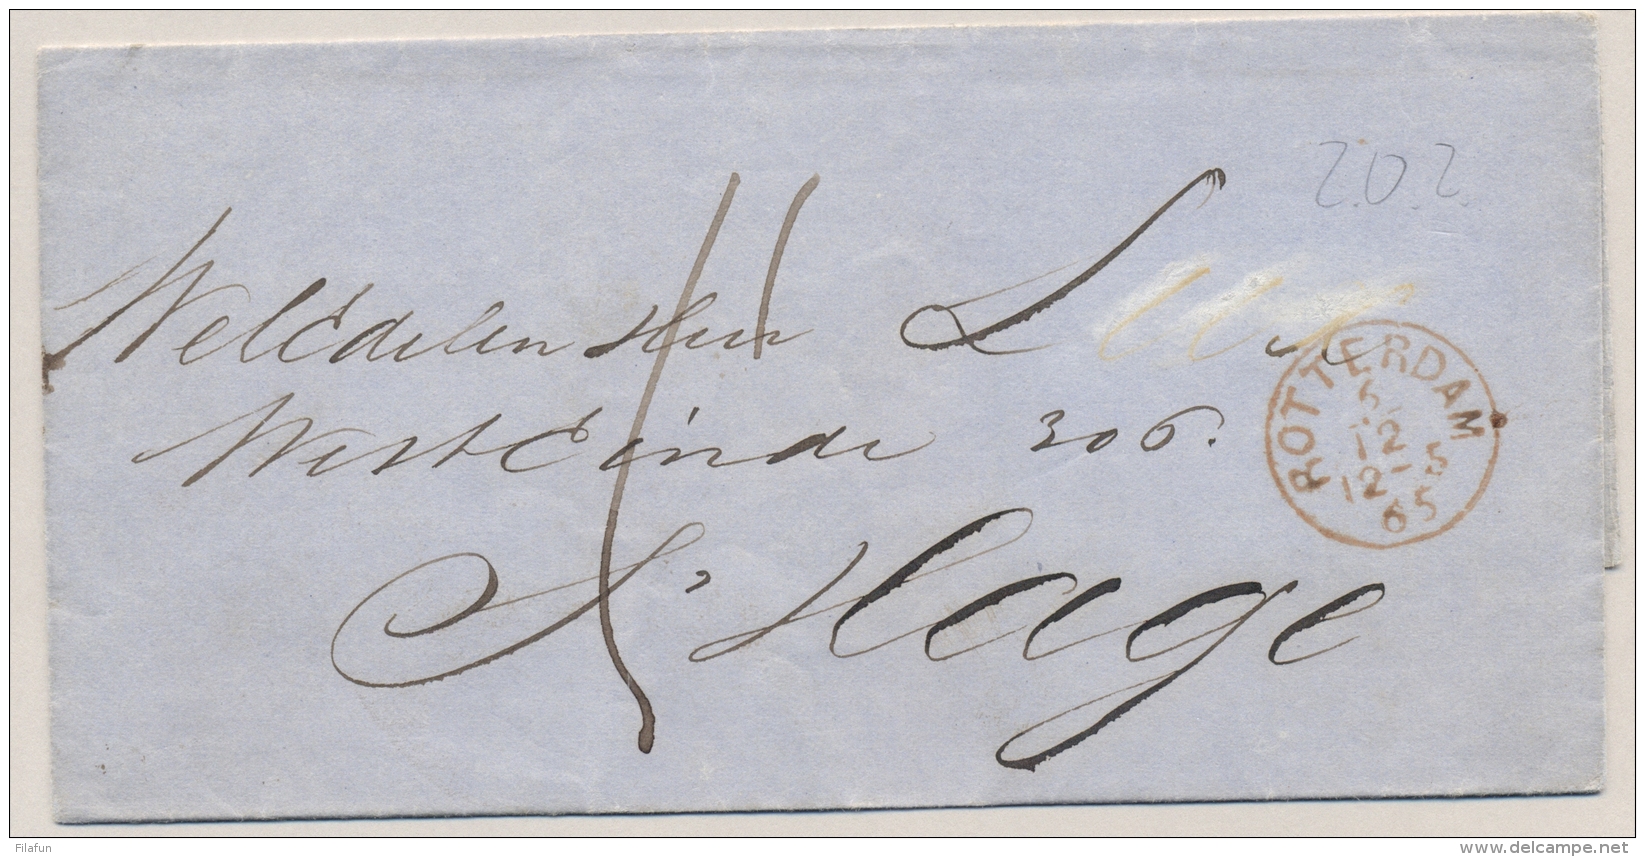 2.02.
WelEdelen Heer L
WestEinde 306.
s' Hage
ROTTERDAM
6
12
12-5
65
Filafun
www.delcampe.net